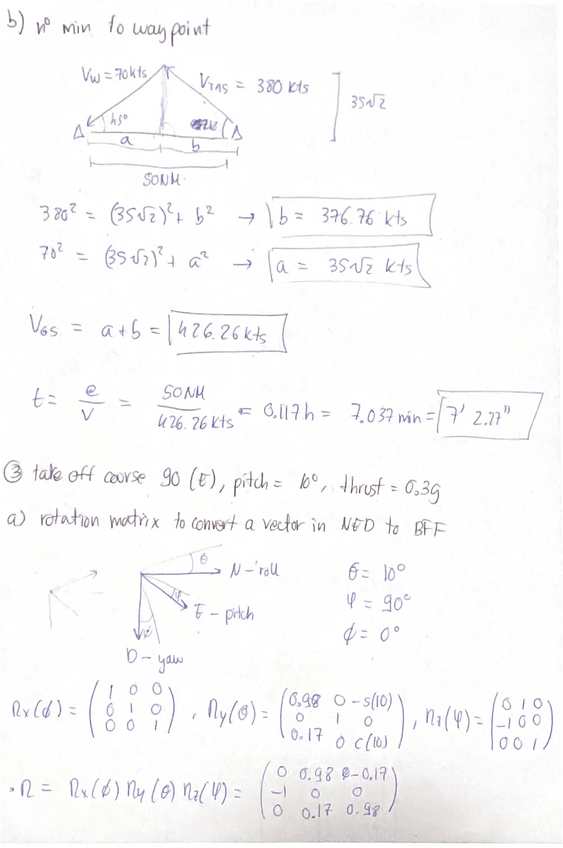 b) nº min to waypoint
Vw = 70kts
VTAS = 380 kts
35√2
45°
a
b
50NM
380² = (35√2)² + b² → b = 376.76 kts
70² = (35√2)² + a² → a = 35√2 kts
VGS = a+b = 426.26kts
t = e/v = 50NM/426.26kts = 0.117h = 7.037min = 7' 2.27"
③ take off course 90 (E), pitch = 10°, thrust = 0.3g
a) rotation matrix to convert a vector in NED to BFF
θ
N - roll
θ = 10°
φ
E - pitch
Ψ = 90°
ϕ = 0°
D - yaw
Rx(ϕ) = (1 0 0
0 1 0
0 0 1) , Ry(θ) = (0.98 0 -s(10)
0 1 0
0.17 0 c(10)) , Rz(Ψ) = (0 1 0
-1 0 0
0 0 1)
· R = Rx(ϕ) Ry(θ) Rz(Ψ) = (0 0.98 -0.17
-1 0 0
0 0.17 0.98)